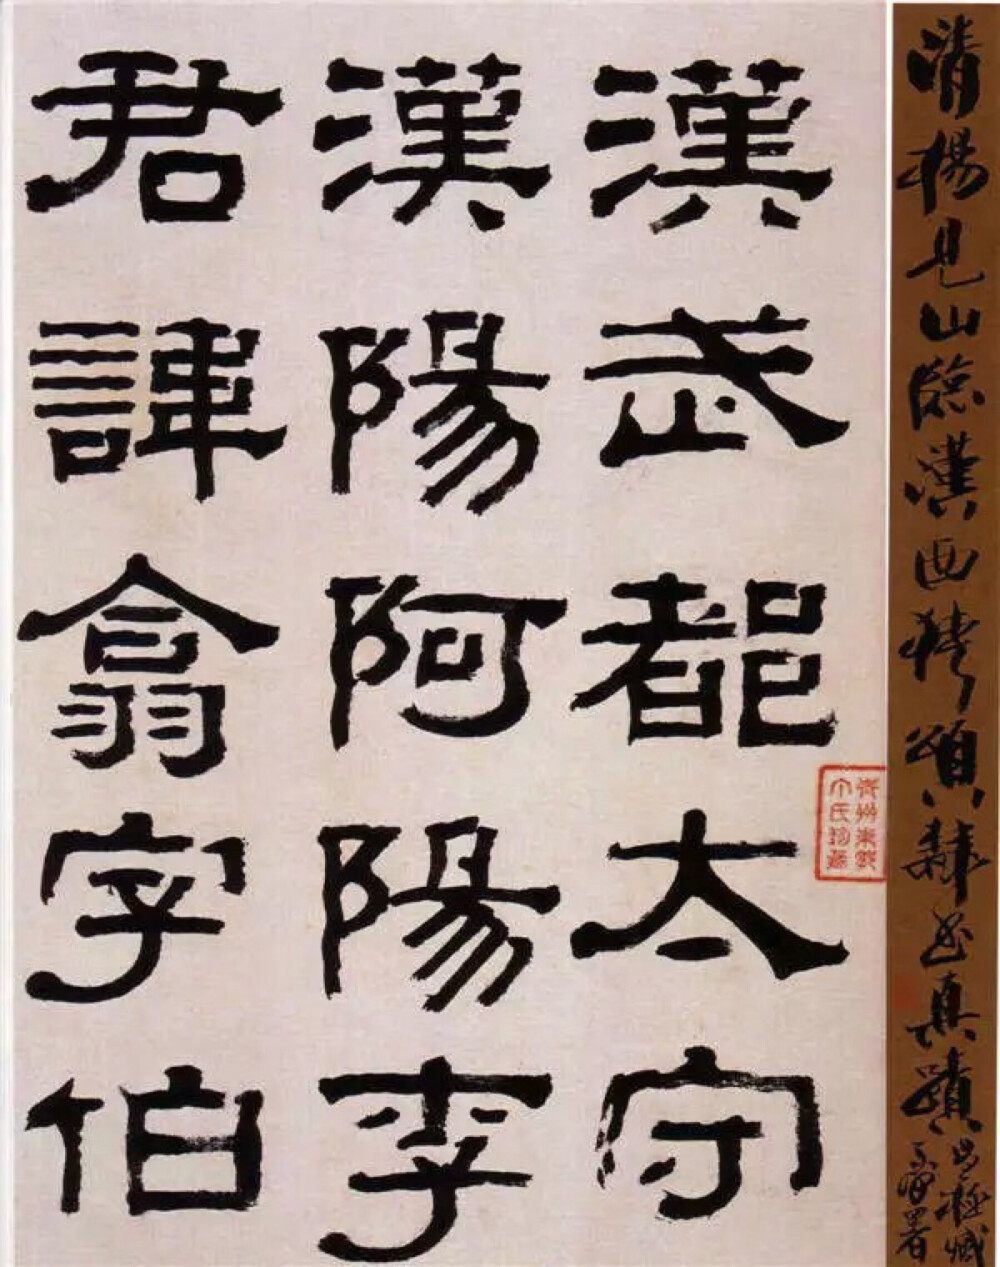 清楊見山臨漢西狹頌隸書真蹟
漢武都太守
漢陽阿陽李
君諱翕字伯